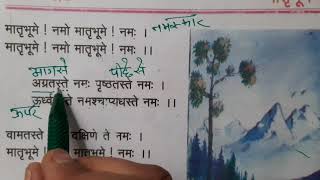 मातृभूमे ! नमो मातृभूमे ! नमः ।
नमस्कार
मातृभूमे ! नमो मातृभूमे ! नमः ।।
पीछे से
अग्रतस्ते नमः पृष्ठतस्ते नमः ।
ऊपर
ते नमश्चाप्यधस्ते नमः ।।
वामतस्ते दक्षिणे ते नमः ।
मातृभूमे ! मातृभूमे ! नमः ।।